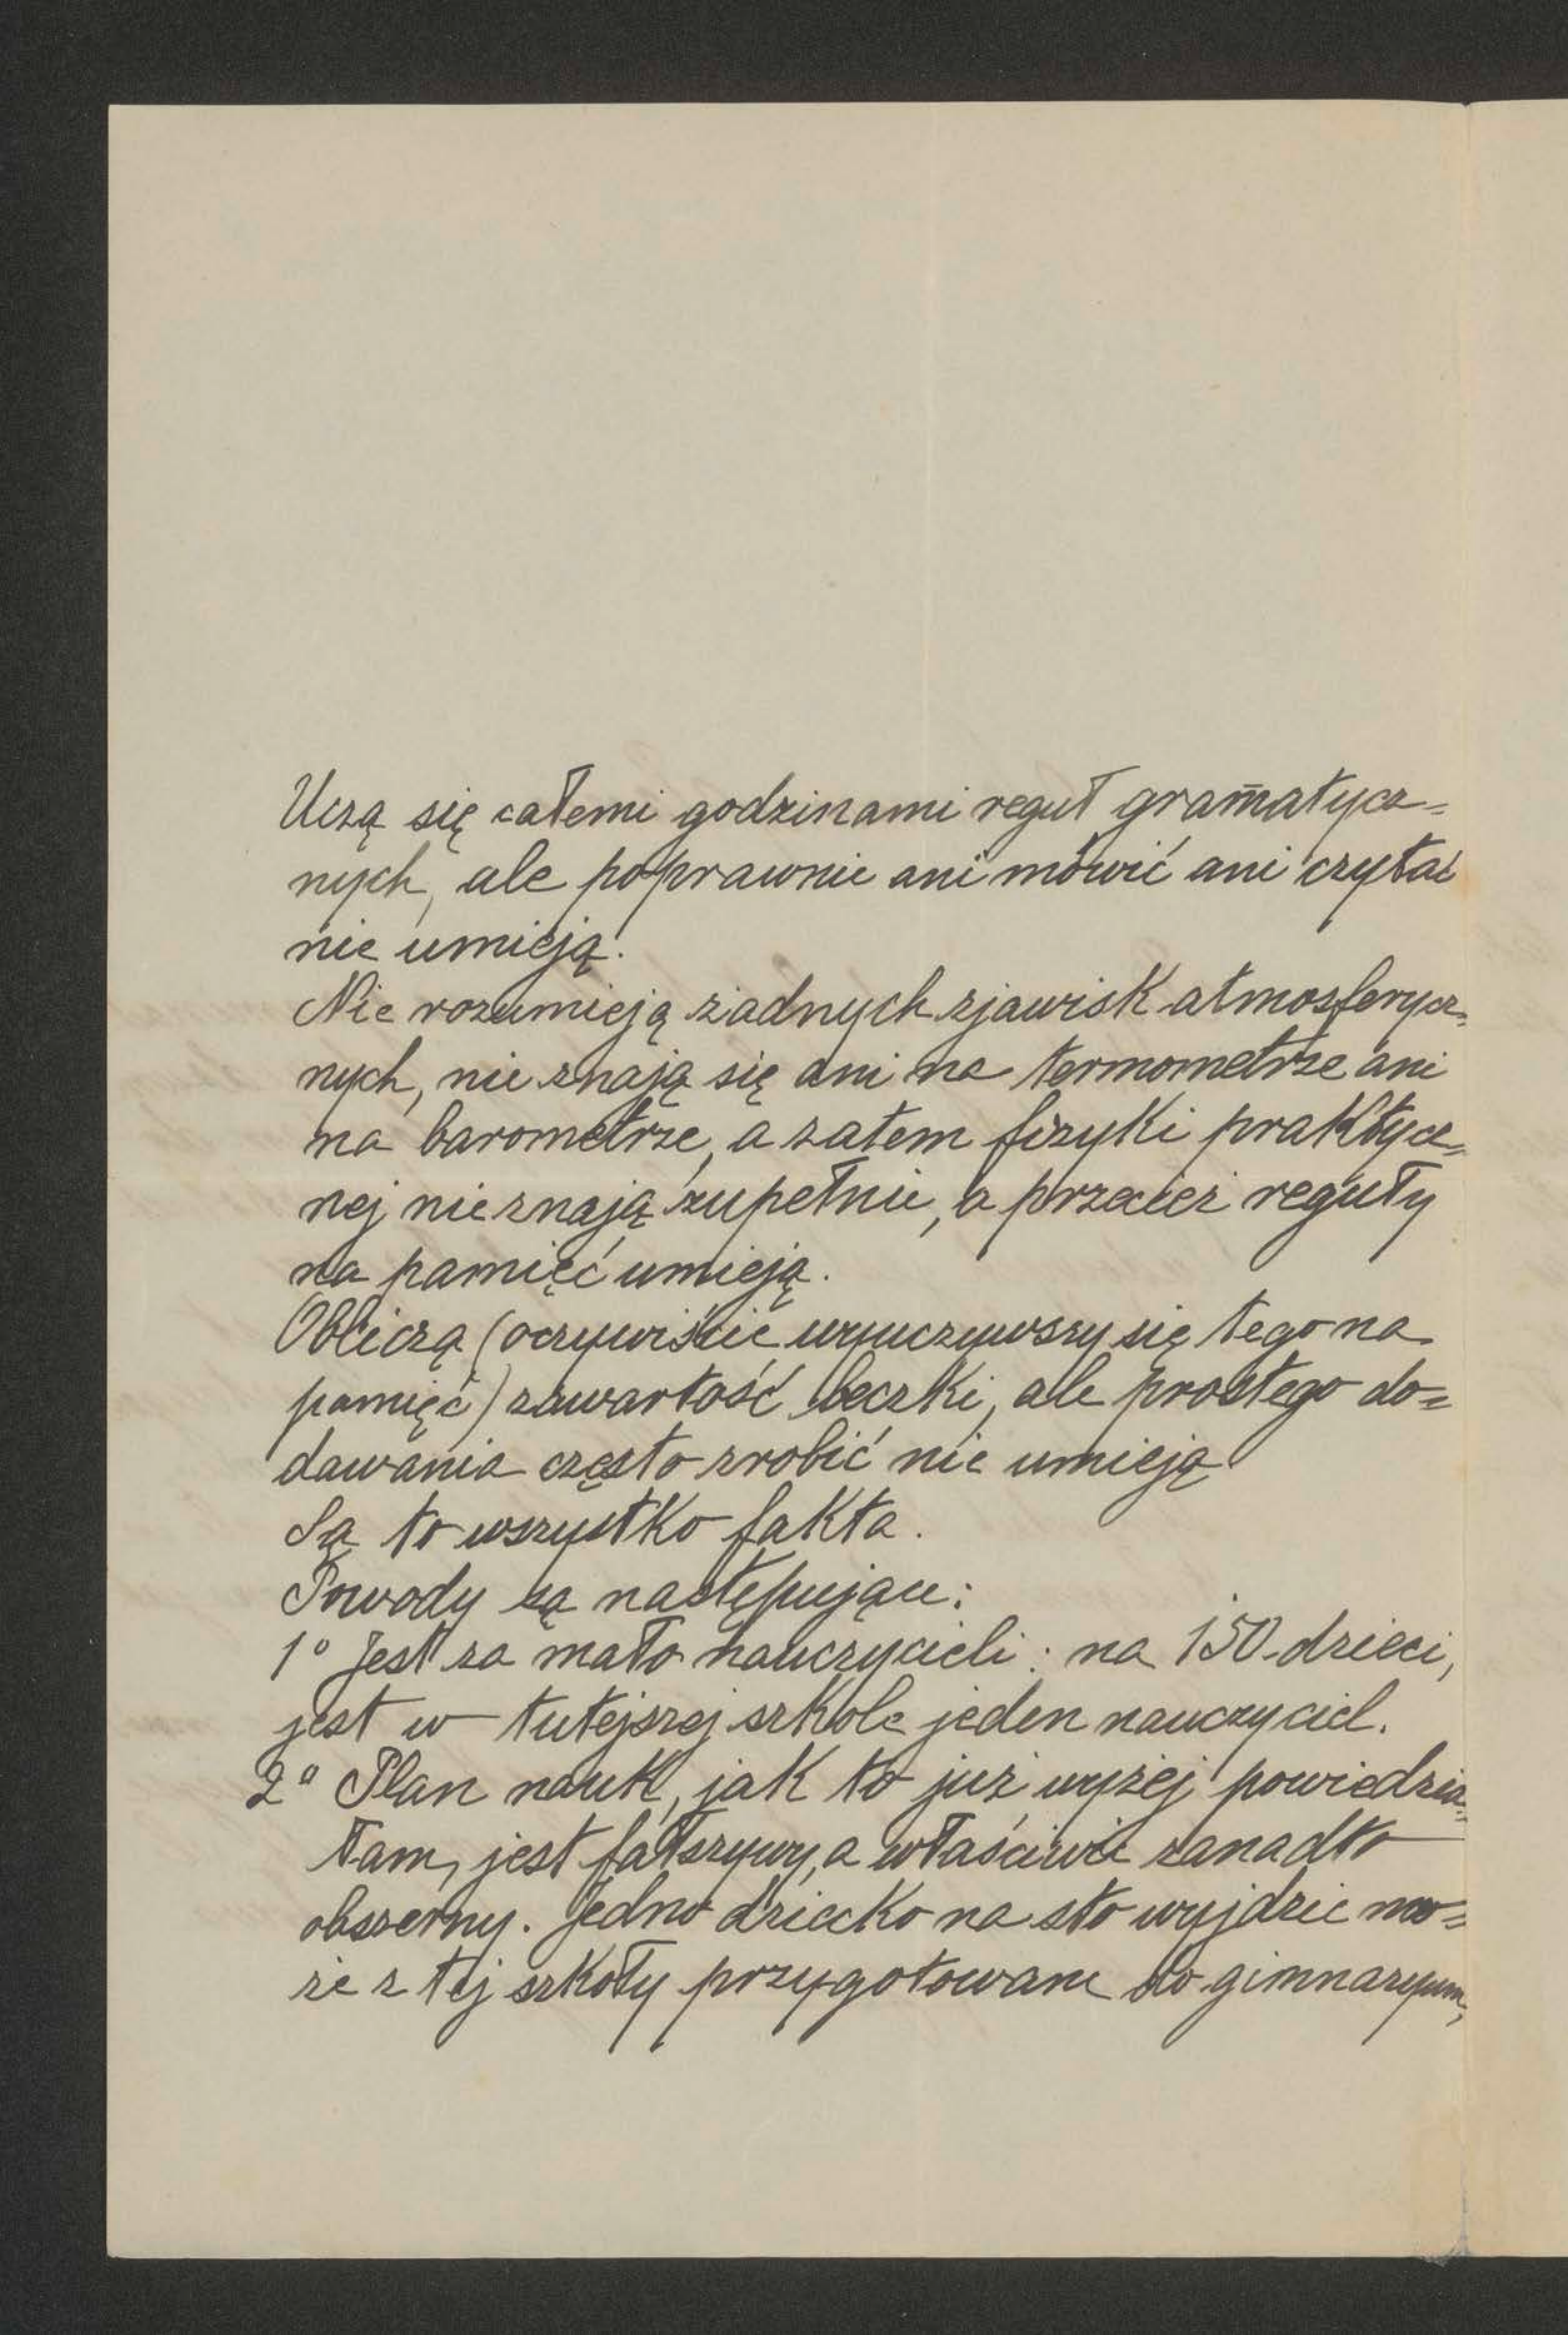 Uczą się całemi godzinami reguł gram̄atycz=
nych, ale poprawnie ani mówić ani czytać
nie umieją.
Nie rozumieją żadnych zjawisk atmosferycz=
nych, nie znają się ani na termometrze ani
na barometrze, a zatem fizyki praktycz=
nej nie znają zupełnie, a przecież reguły
na pamięć umieją.
Obliczą (oczywiście wyuczywszy się tego na
pamięć) zawartość beczki, ale prostego do=
dawania często zrobić nie umieją
Są to wszystko fakta.
Powody są następujące:
1° Jest za mało nauczycieli: na 150 dzieci,
jest w tutejszej szkole jeden nauczyciel.
2° Plan nauk, jak to już wyżej powiedzia=
łam, jest fałszywy, a właściwie zanadto
obszerny. Jedno dziecko na sto wyjdzie mo=
że z tej szkoły przygotowane do gimnazyum,